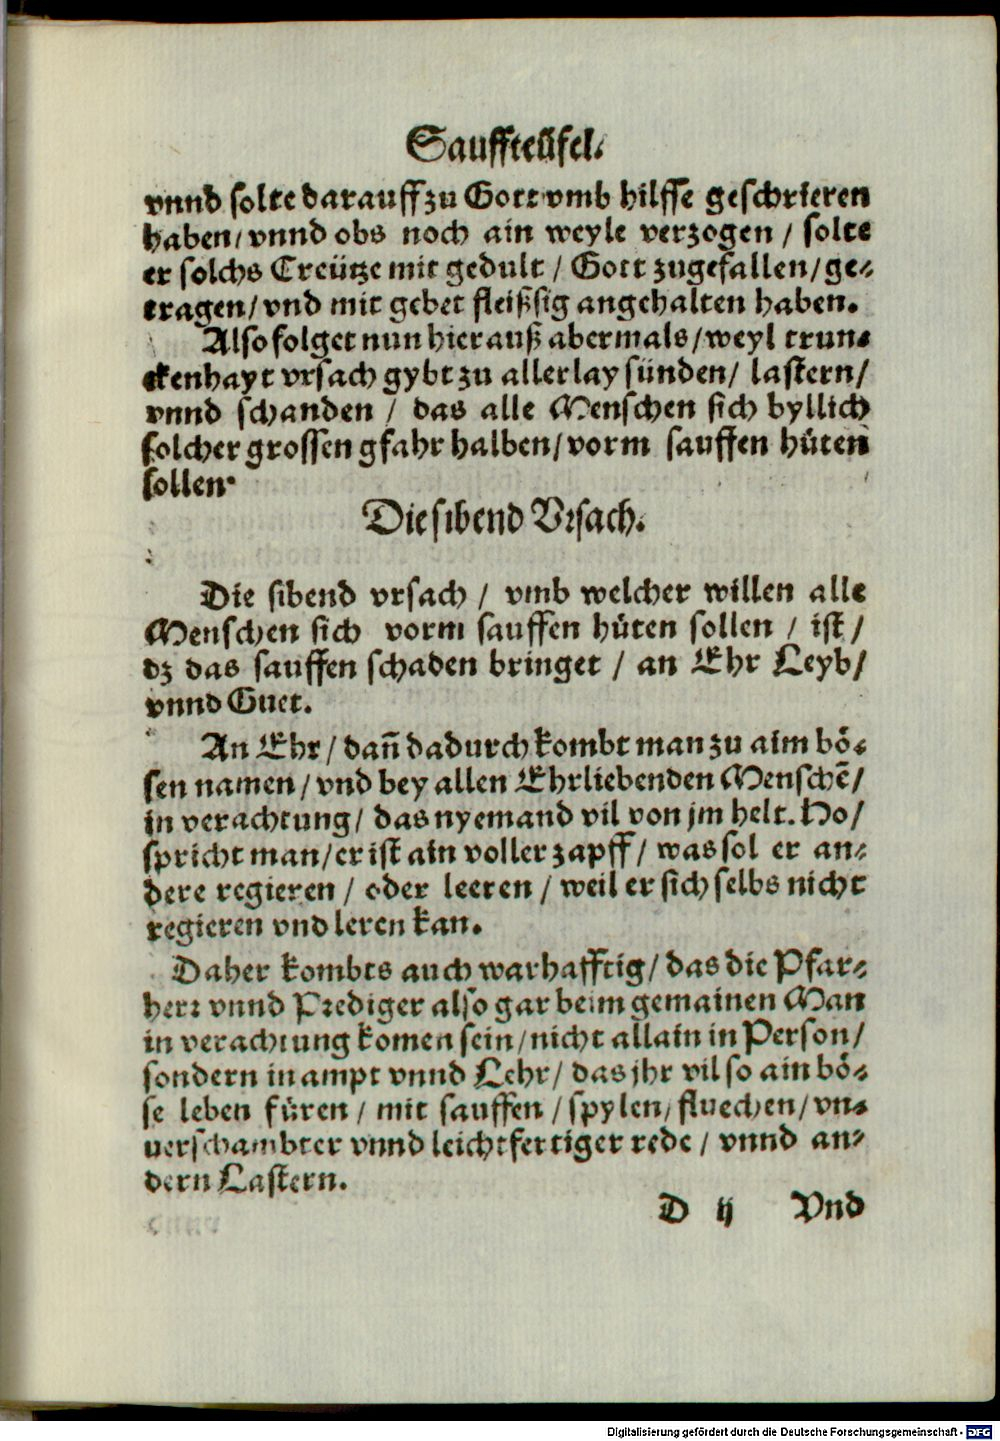 Sauffteüfel.
vnnd solte darauff zu Gott vmb hilffe geschrieren
haben/ vnnd obs noch ain weyle verzogen / solte
er solchs Creütze mit gedult / Gott zugefallen/ ge-
tragen/ vnd mit gebet fleißsig angehalten haben.
Also folget nun hierauß abermals/ weyl trun-
ckenhayt vrsach gybt zu allerlay sünden/ lastern/
vnnd schanden / das alle Menschen sich byllich
solcher grossen gfahr halben/ vorm sauffen hüten
sollen.
Die sibend Vrsach.
Die sibend vrsach / vmb welcher willen alle
Menschen sich vorm sauffen hüten sollen / ist /
dz das sauffen schaden bringet / an Ehr Leyb/
vnnd Guet.
An Ehr / dañ dadurch kombt man zu aim bö-
sen namen / vnd bey allen Ehrliebenden Menschẽ/
in verachtung/ das nyemand vil von jm helt. Do/
spricht man/ er ist ain voller zapff / was sol er an-
dere regieren / oder leeren / weil er sich selbs nicht
regieren vnd leren kan.
Daher kombts auch warhafftig/ das die Pfar-
herr vnnd Prediger also gar beim gemainen Man
in verachtung komen sein/ nicht allain in Person/
sondern in ampt vnnd Lehr/ das jhr vil so ain bö-
se leben füren / mit sauffen / spylen/ fluechen/ vn-
uerschambter vnnd leichtfertiger rede / vnnd an-
dern Lastern.
D ij Vnd
Digitalisierung gefördert durch die Deutsche Forschungsgemeinschaft - DFG